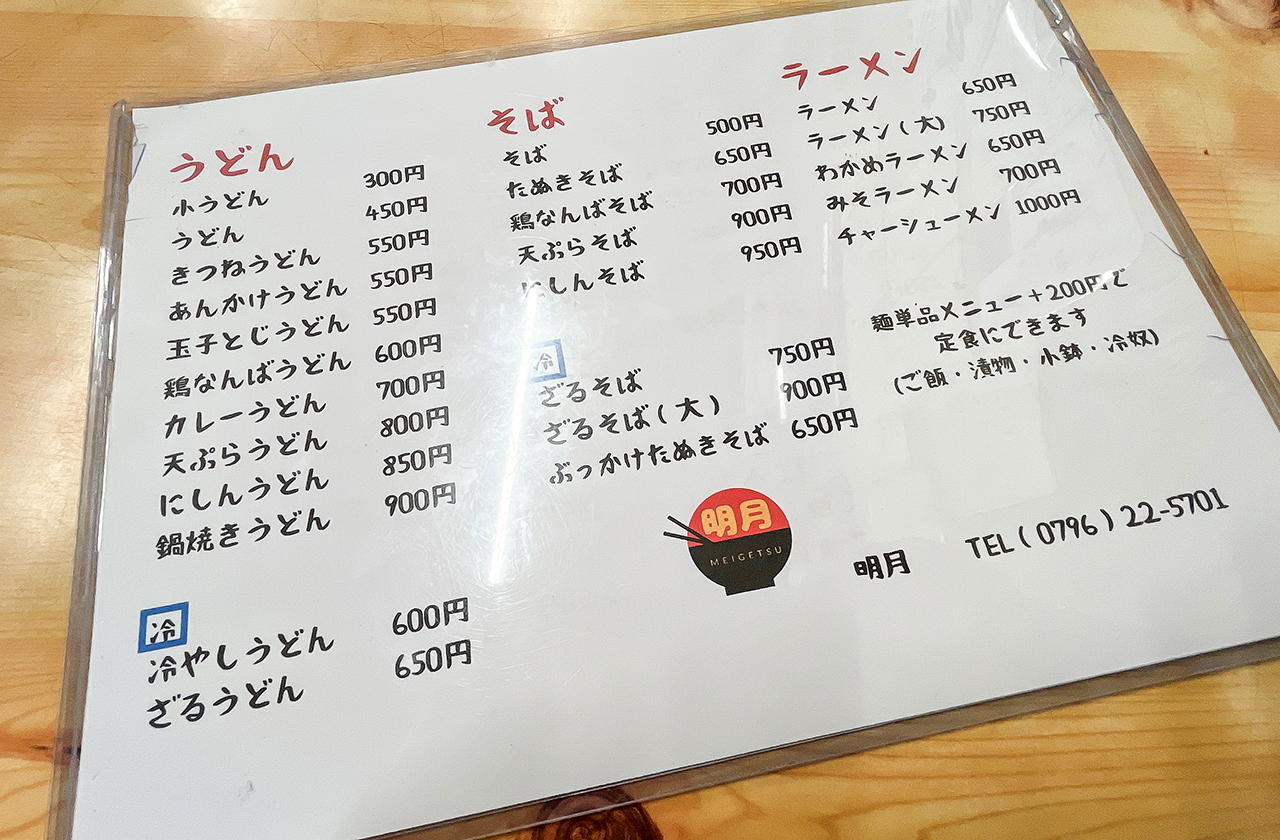 うどん
小うどん 300円
うどん 450円
きつねうどん 550円
あんかけうどん 550円
玉子とじうどん 550円
鶏なんばうどん 600円
カレーうどん 700円
天ぷらうどん 800円
にしんうどん 850円
鍋焼きうどん 900円
冷
冷やしうどん 600円
ざるうどん 650円
そば
そば 500円
たぬきそば 650円
鶏なんばそば 700円
天ぷらそば 900円
にしんそば 950円
冷
ざるそば 750円
ざるそば(大) 900円
ぶっかけたぬきそば 650円
ラーメン
ラーメン 650円
ラーメン(大) 750円
わかめラーメン 650円
みそラーメン 700円
チャーシューメン 1000円
麺単品メニュー+200円で
定食にできます
(ご飯・漬物・小鉢・冷奴)
明月
MEIGETSU
明月 TEL(0796)22-5701